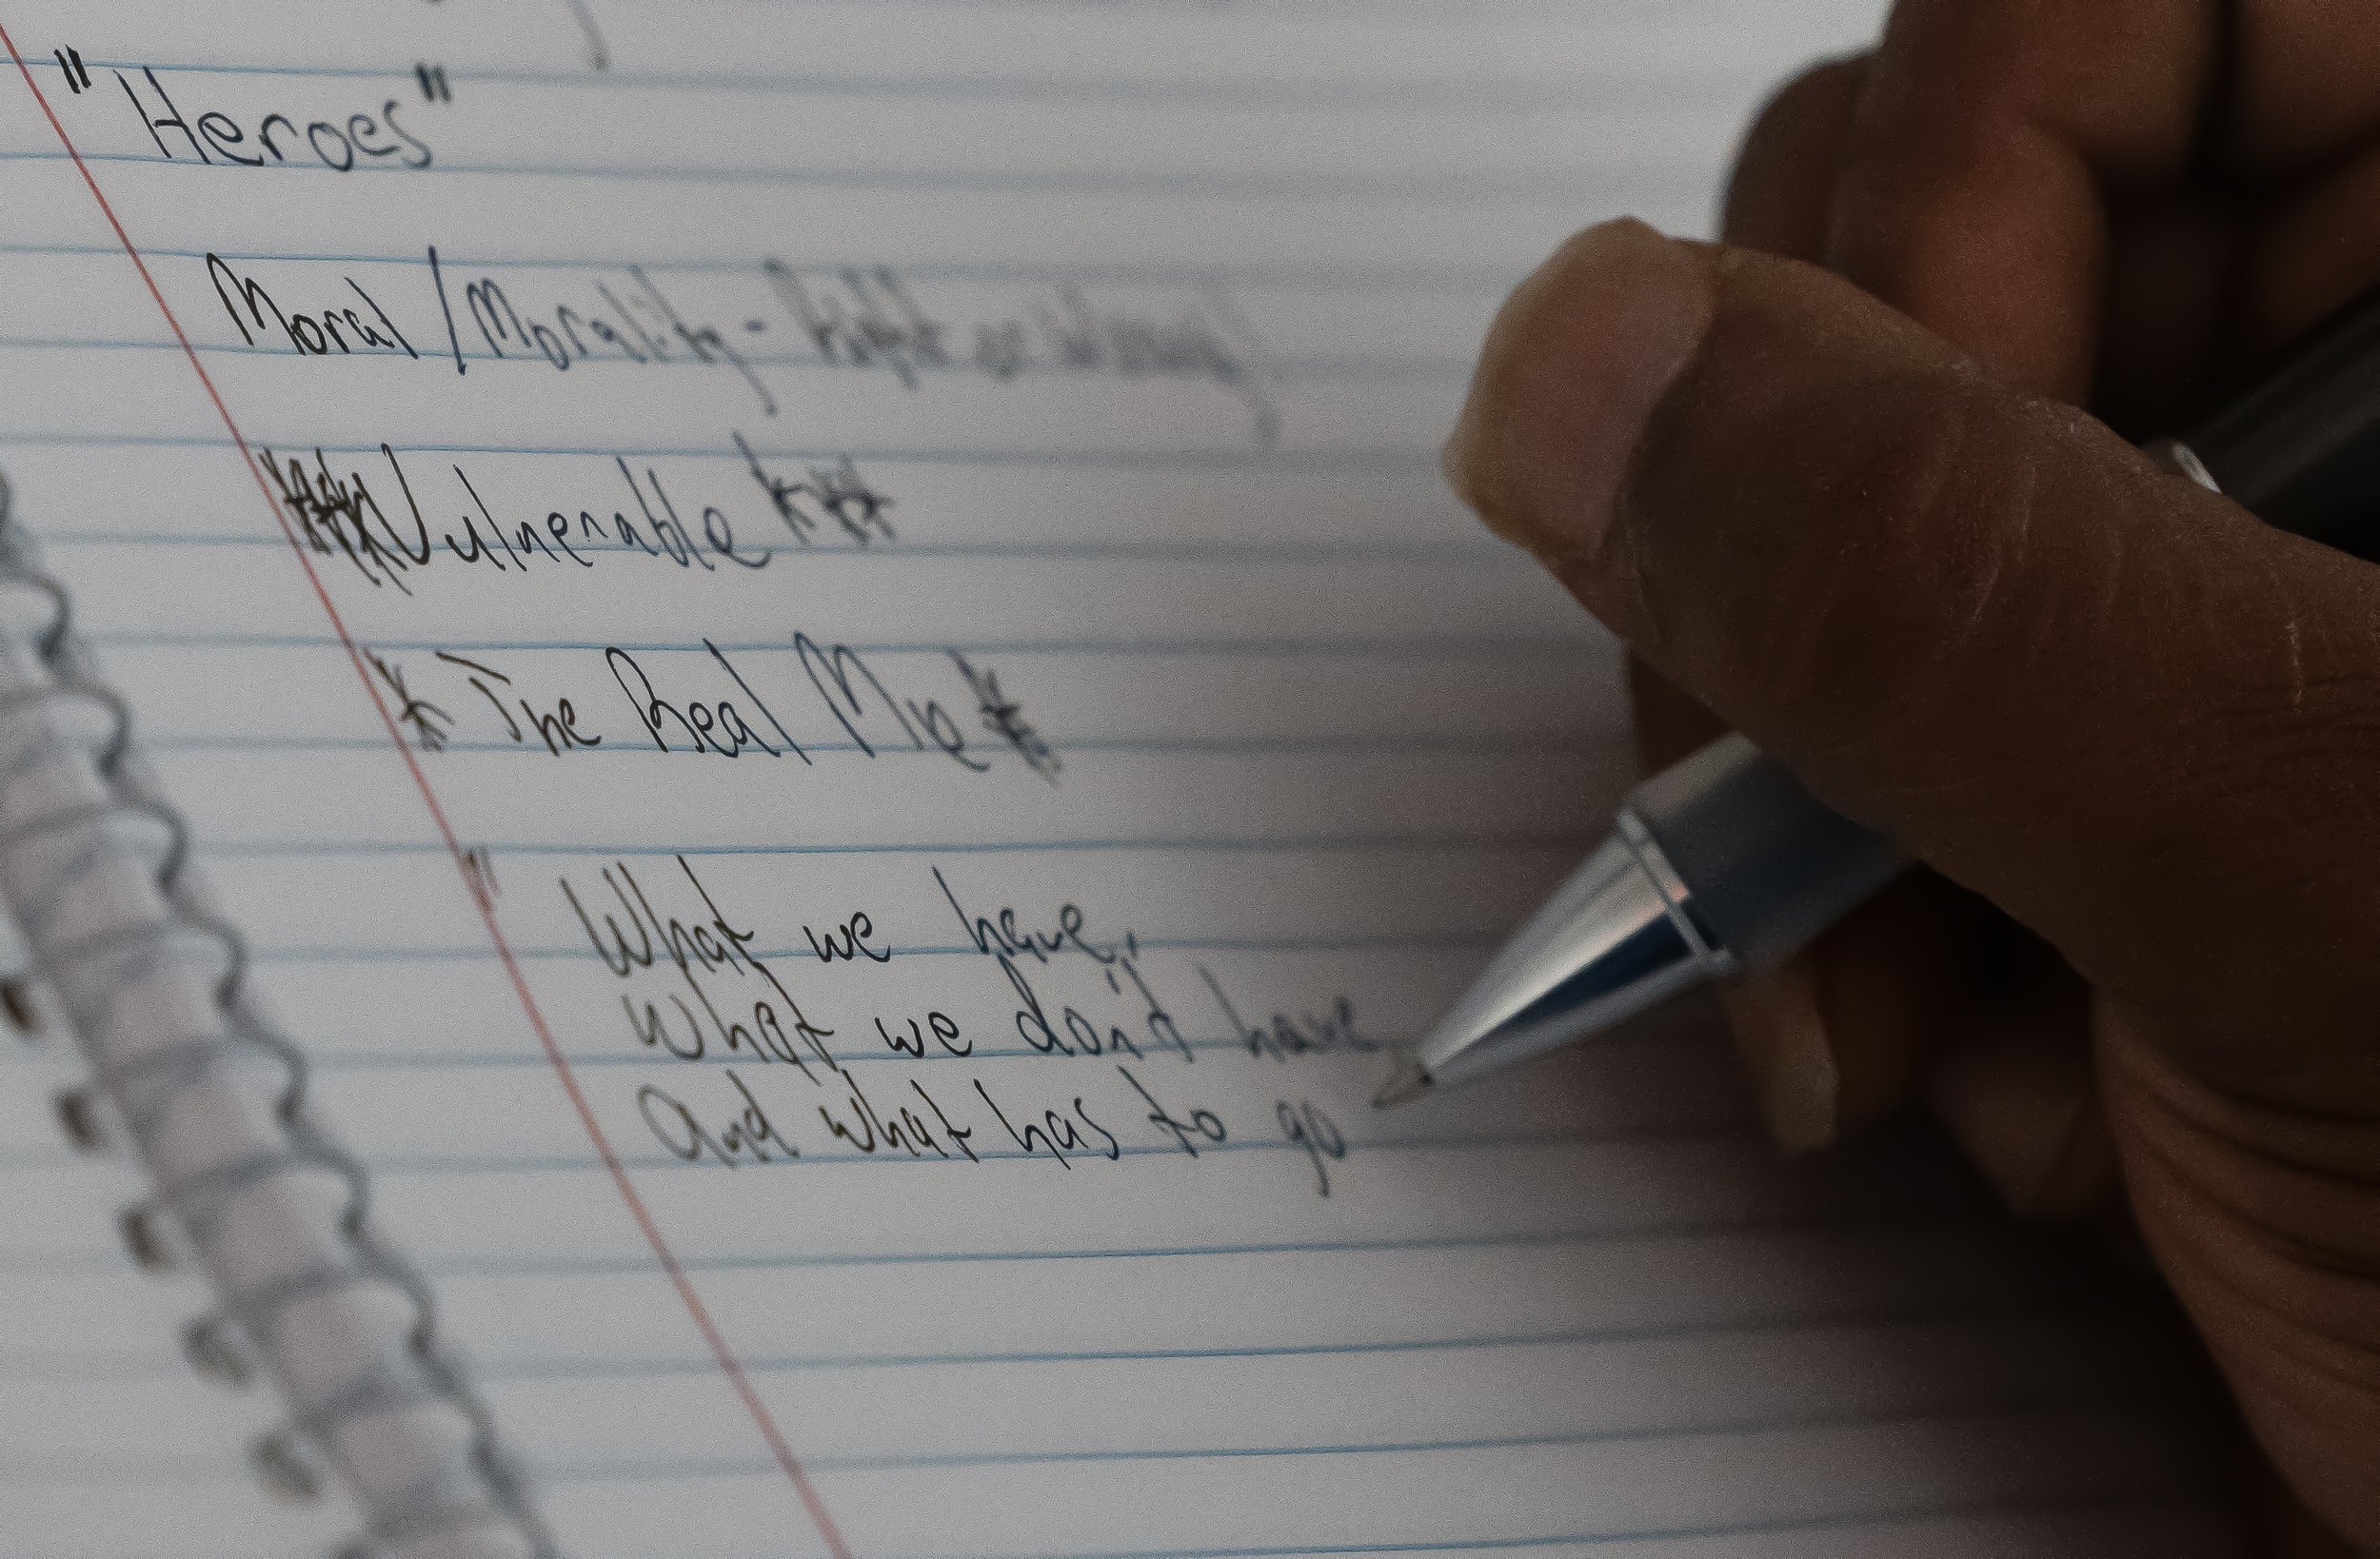 "Heroes"
Moral/Morality - Right or Wrong
***Vulnerable***
*The Real Me*
" What we have,
What we don't have
And what has to go